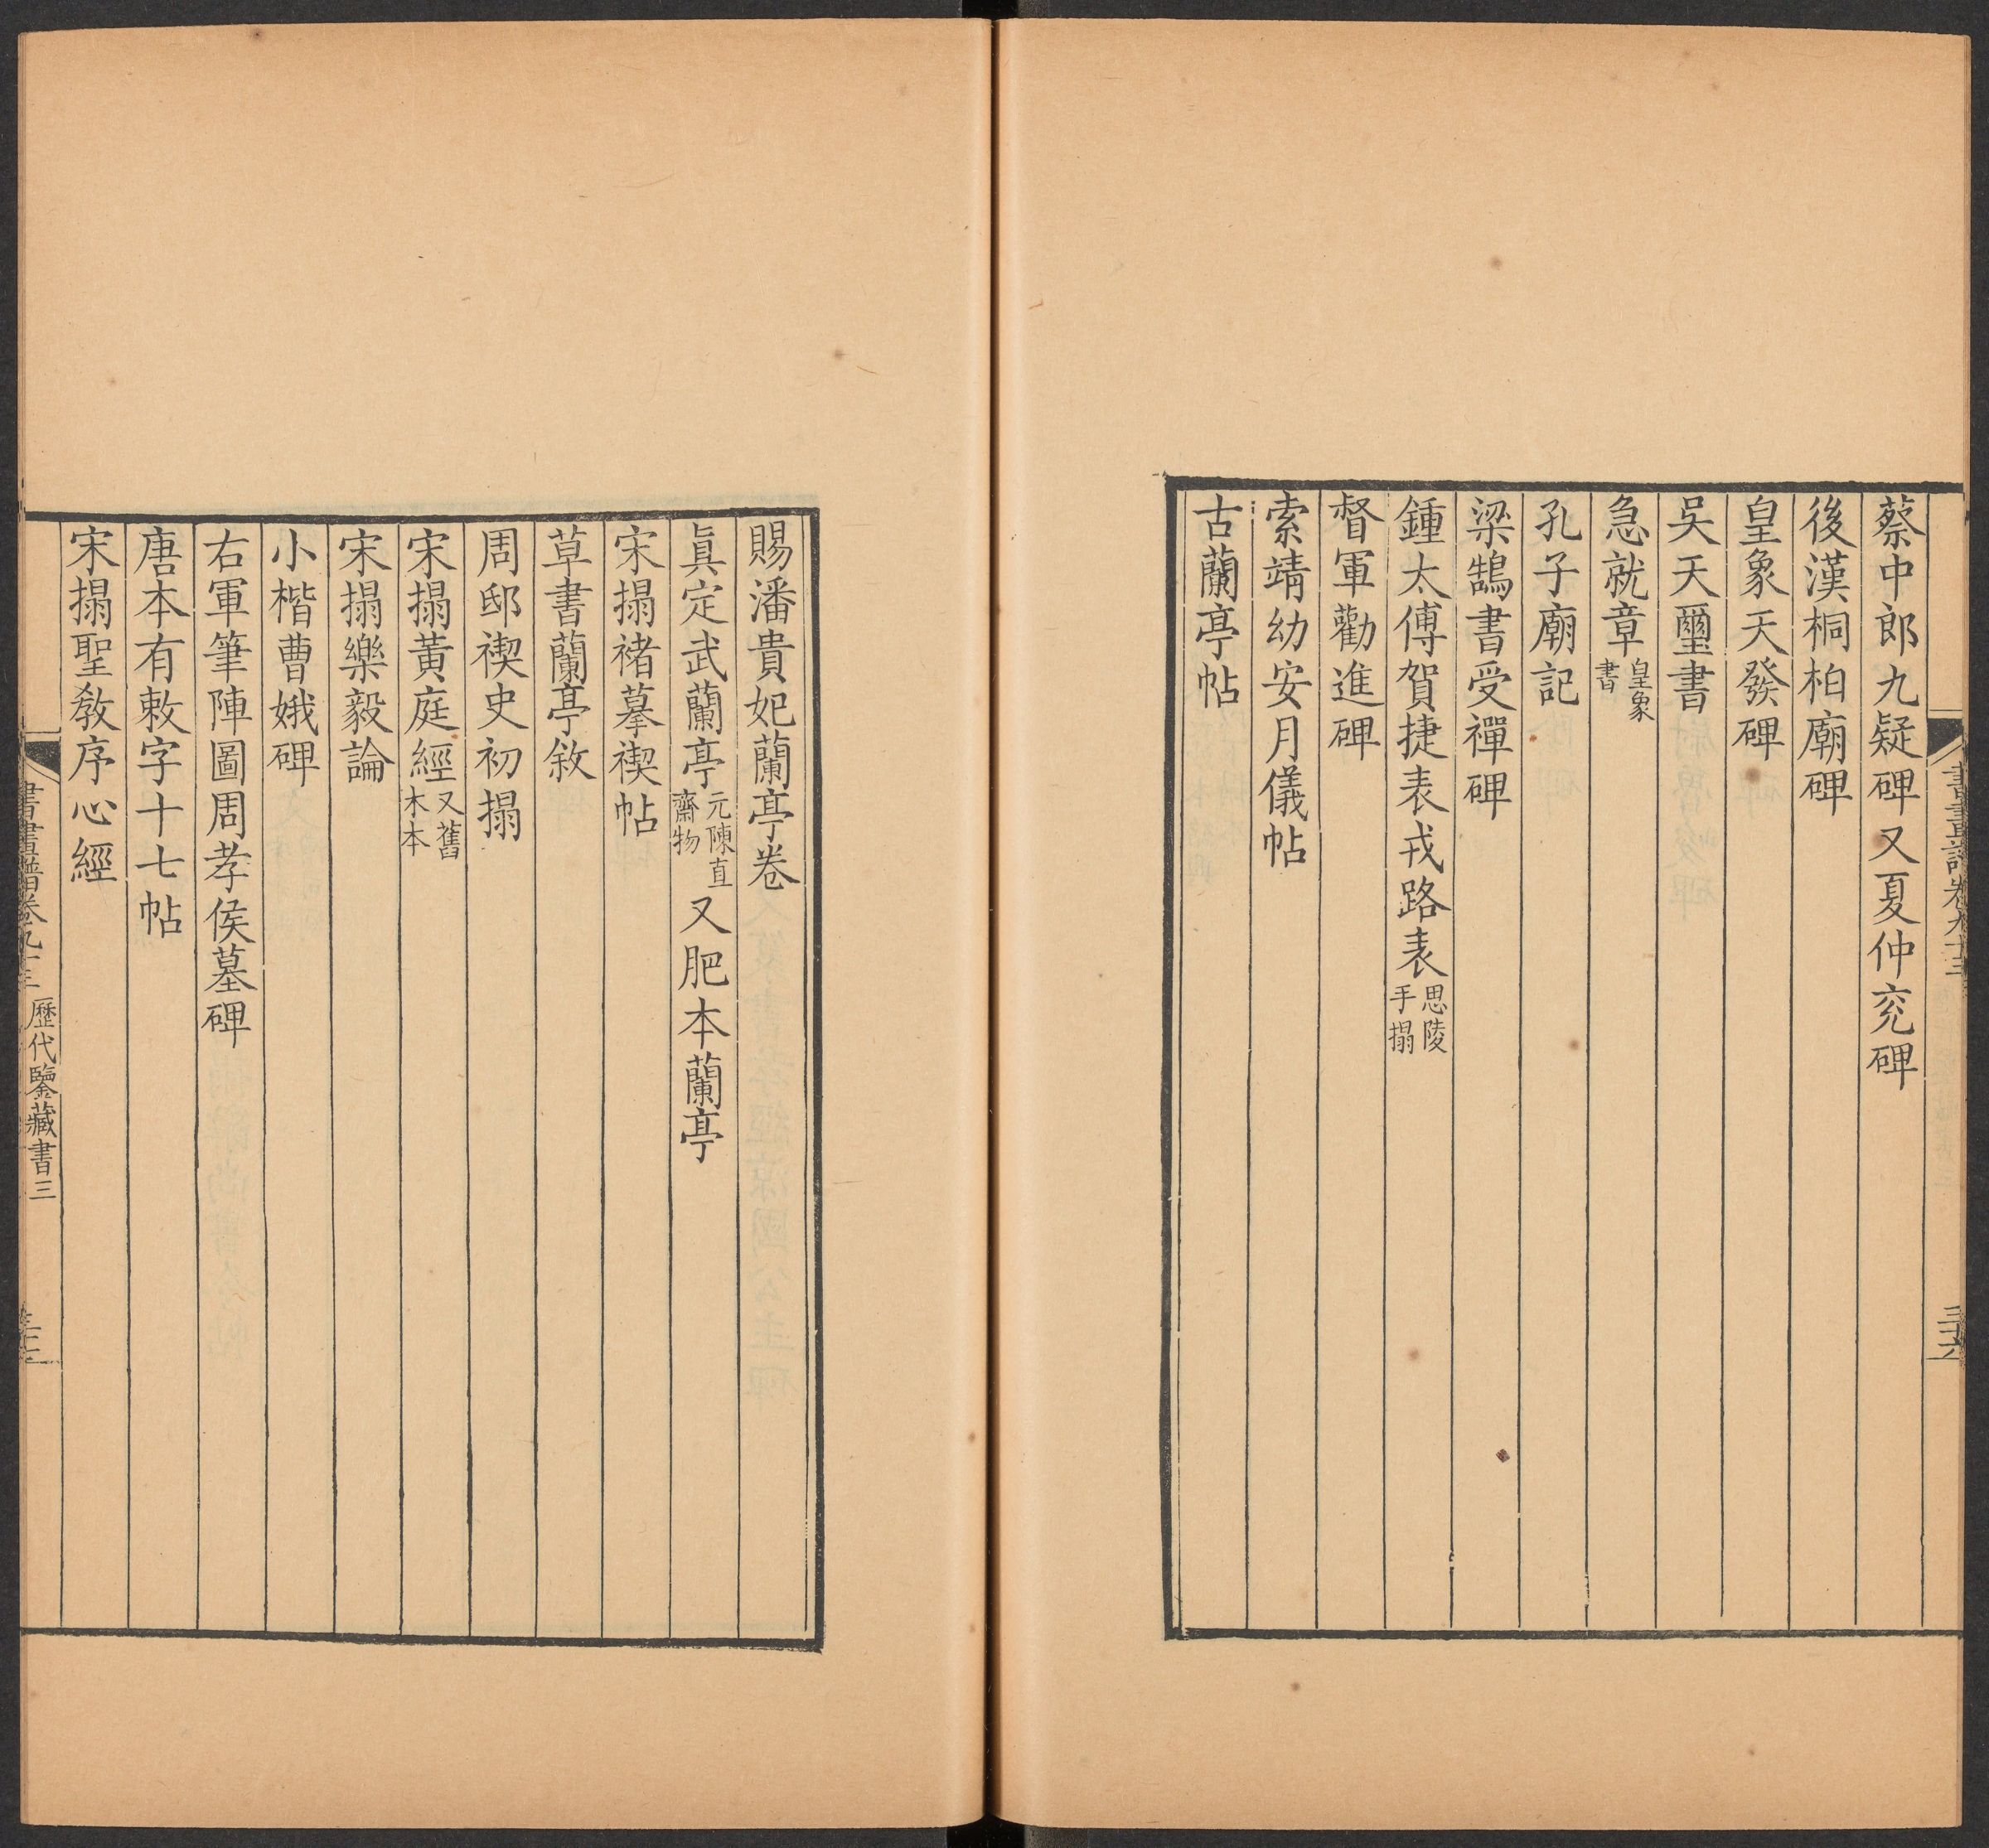 蔡中郎九疑碑又夏仲兖碑
後漢桐柏廟碑
皇象天發碑
吳天璽書
急就章皇象書
孔子廟記
梁鵠書受禪碑
鍾太傅賀捷表戎路表思陵手搨
督軍勸進碑
索靖幼安月儀帖
古蘭亭帖
賜潘貴妃蘭亭卷
眞定武蘭亭元陳直齋物又肥本蘭亭
宋搨褚摹禊帖
草書蘭亭敘
周邸禊史初搨
宋搨黃庭經又舊木本
宋搨樂毅論
小楷曹娥碑
右軍筆陣圖周孝侯墓碑
唐本有敕字十七帖
宋搨聖教序心經
歷代鑒藏書三